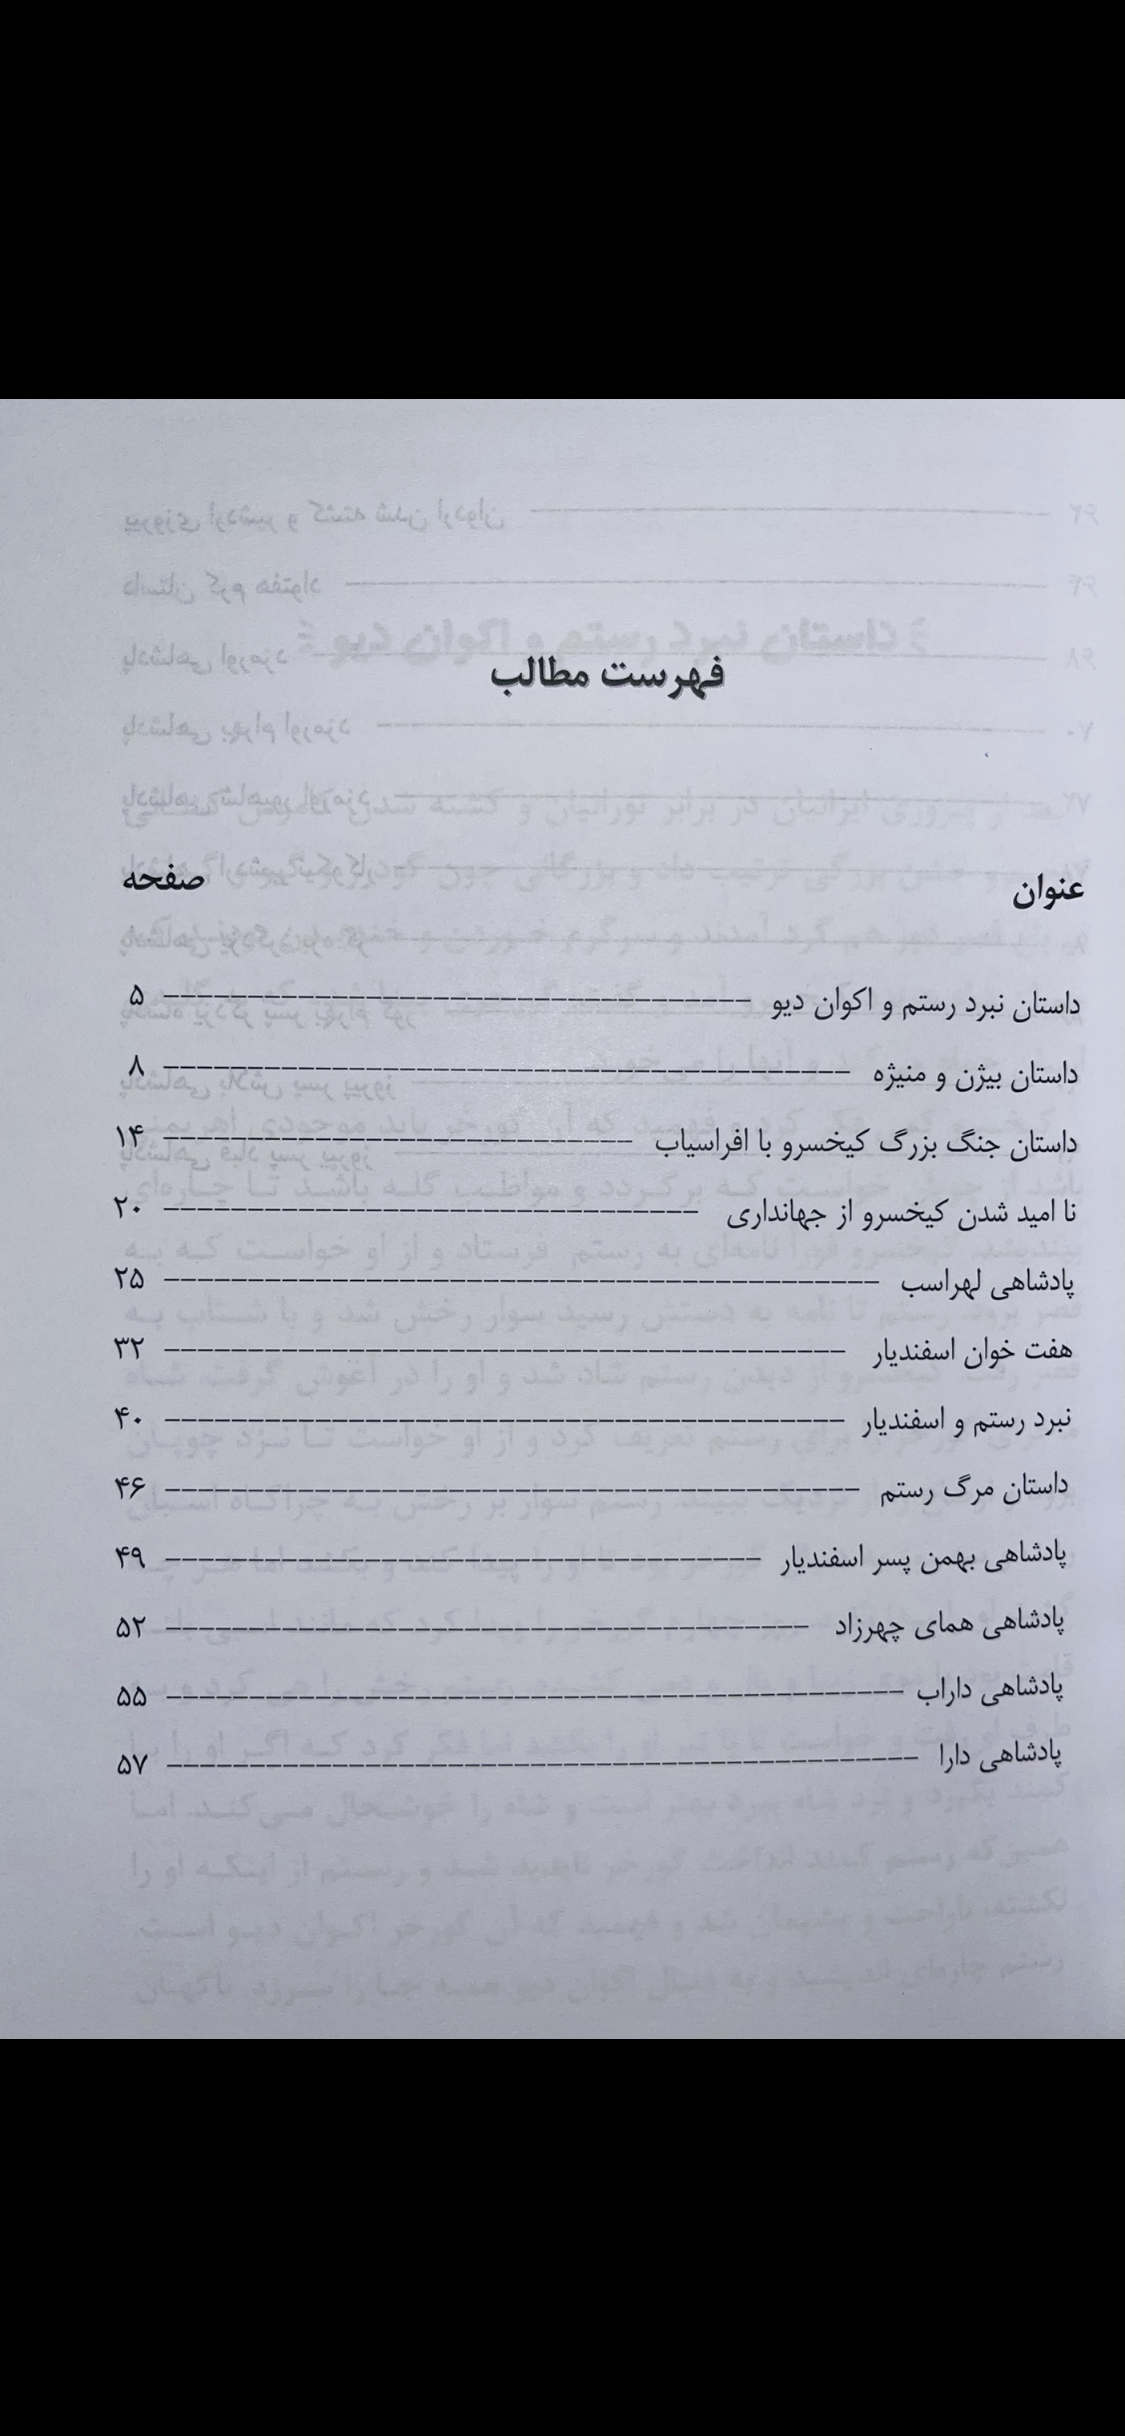 فهرست مطالب
عنوان صفحه
داستان نبرد رستم و اکوان دیو ---------- ۵
داستان بیژن و منیژه ---------- ۸
داستان جنگ بزرگ کیخسرو با افراسیاب ---------- ۱۴
نا امید شدن کیخسرو از جهانداری ---------- ۲۰
پادشاهی لهراسب ---------- ۲۵
هفت خوان اسفندیار ---------- ۳۲
نبرد رستم و اسفندیار ---------- ۴۰
داستان مرگ رستم ---------- ۴۶
پادشاهی بهمن پسر اسفندیار ---------- ۴۹
پادشاهی همای چهرزاد ---------- ۵۲
پادشاهی داراب ---------- ۵۵
پادشاهی دارا ---------- ۵۷